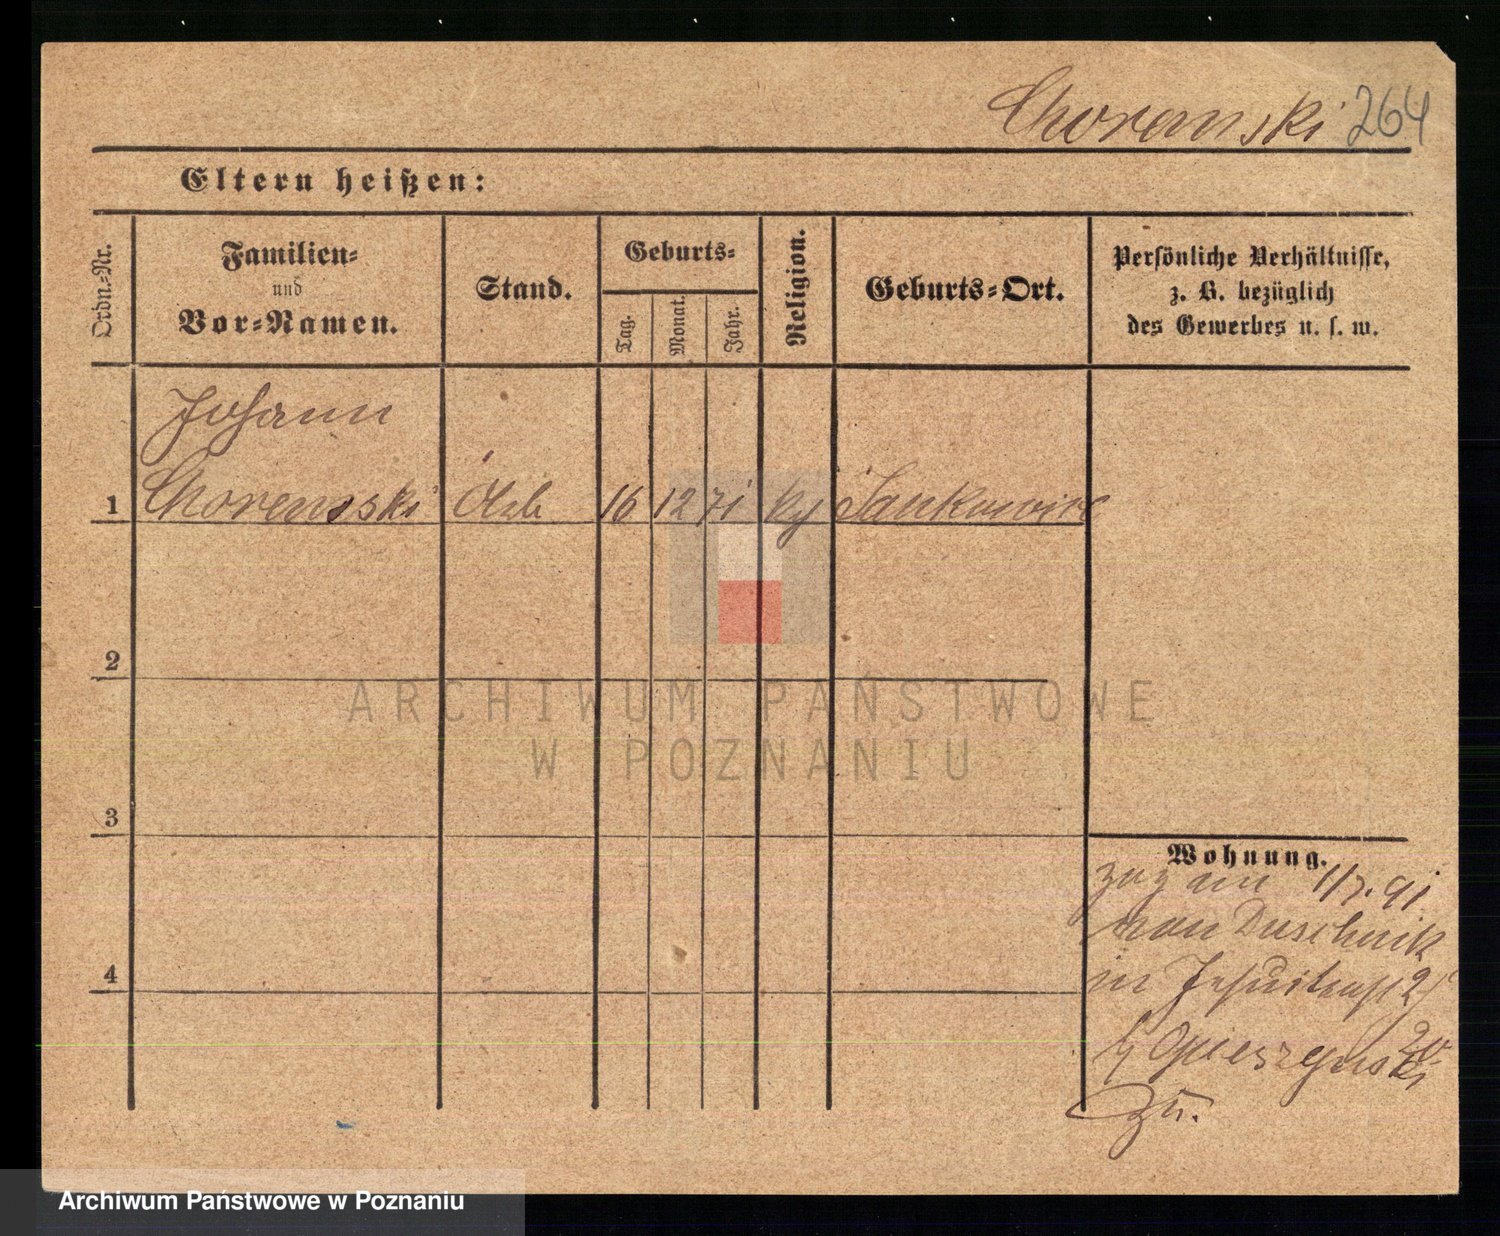 Choranski 264
Eltern heißen:
Ordn.-Nr.
Familien-
und
Vor-Namen.
Stand.
Geburts-
Tag.
Monat.
Jahr.
Religion.
Geburts-Ort.
Persönliche Verhältnisse,
z. B. bezüglich
des Gewerbes u. s. w.
Johann
1 Chorenski 16 12 71 Jankowice
2
3
4
Wohnung.
zug am 1/7. 91
von Duschnik
in
zu.
ARCHIWUM PAŃSTWOWE
W POZNANIU
Archiwum Państwowe w Poznaniu